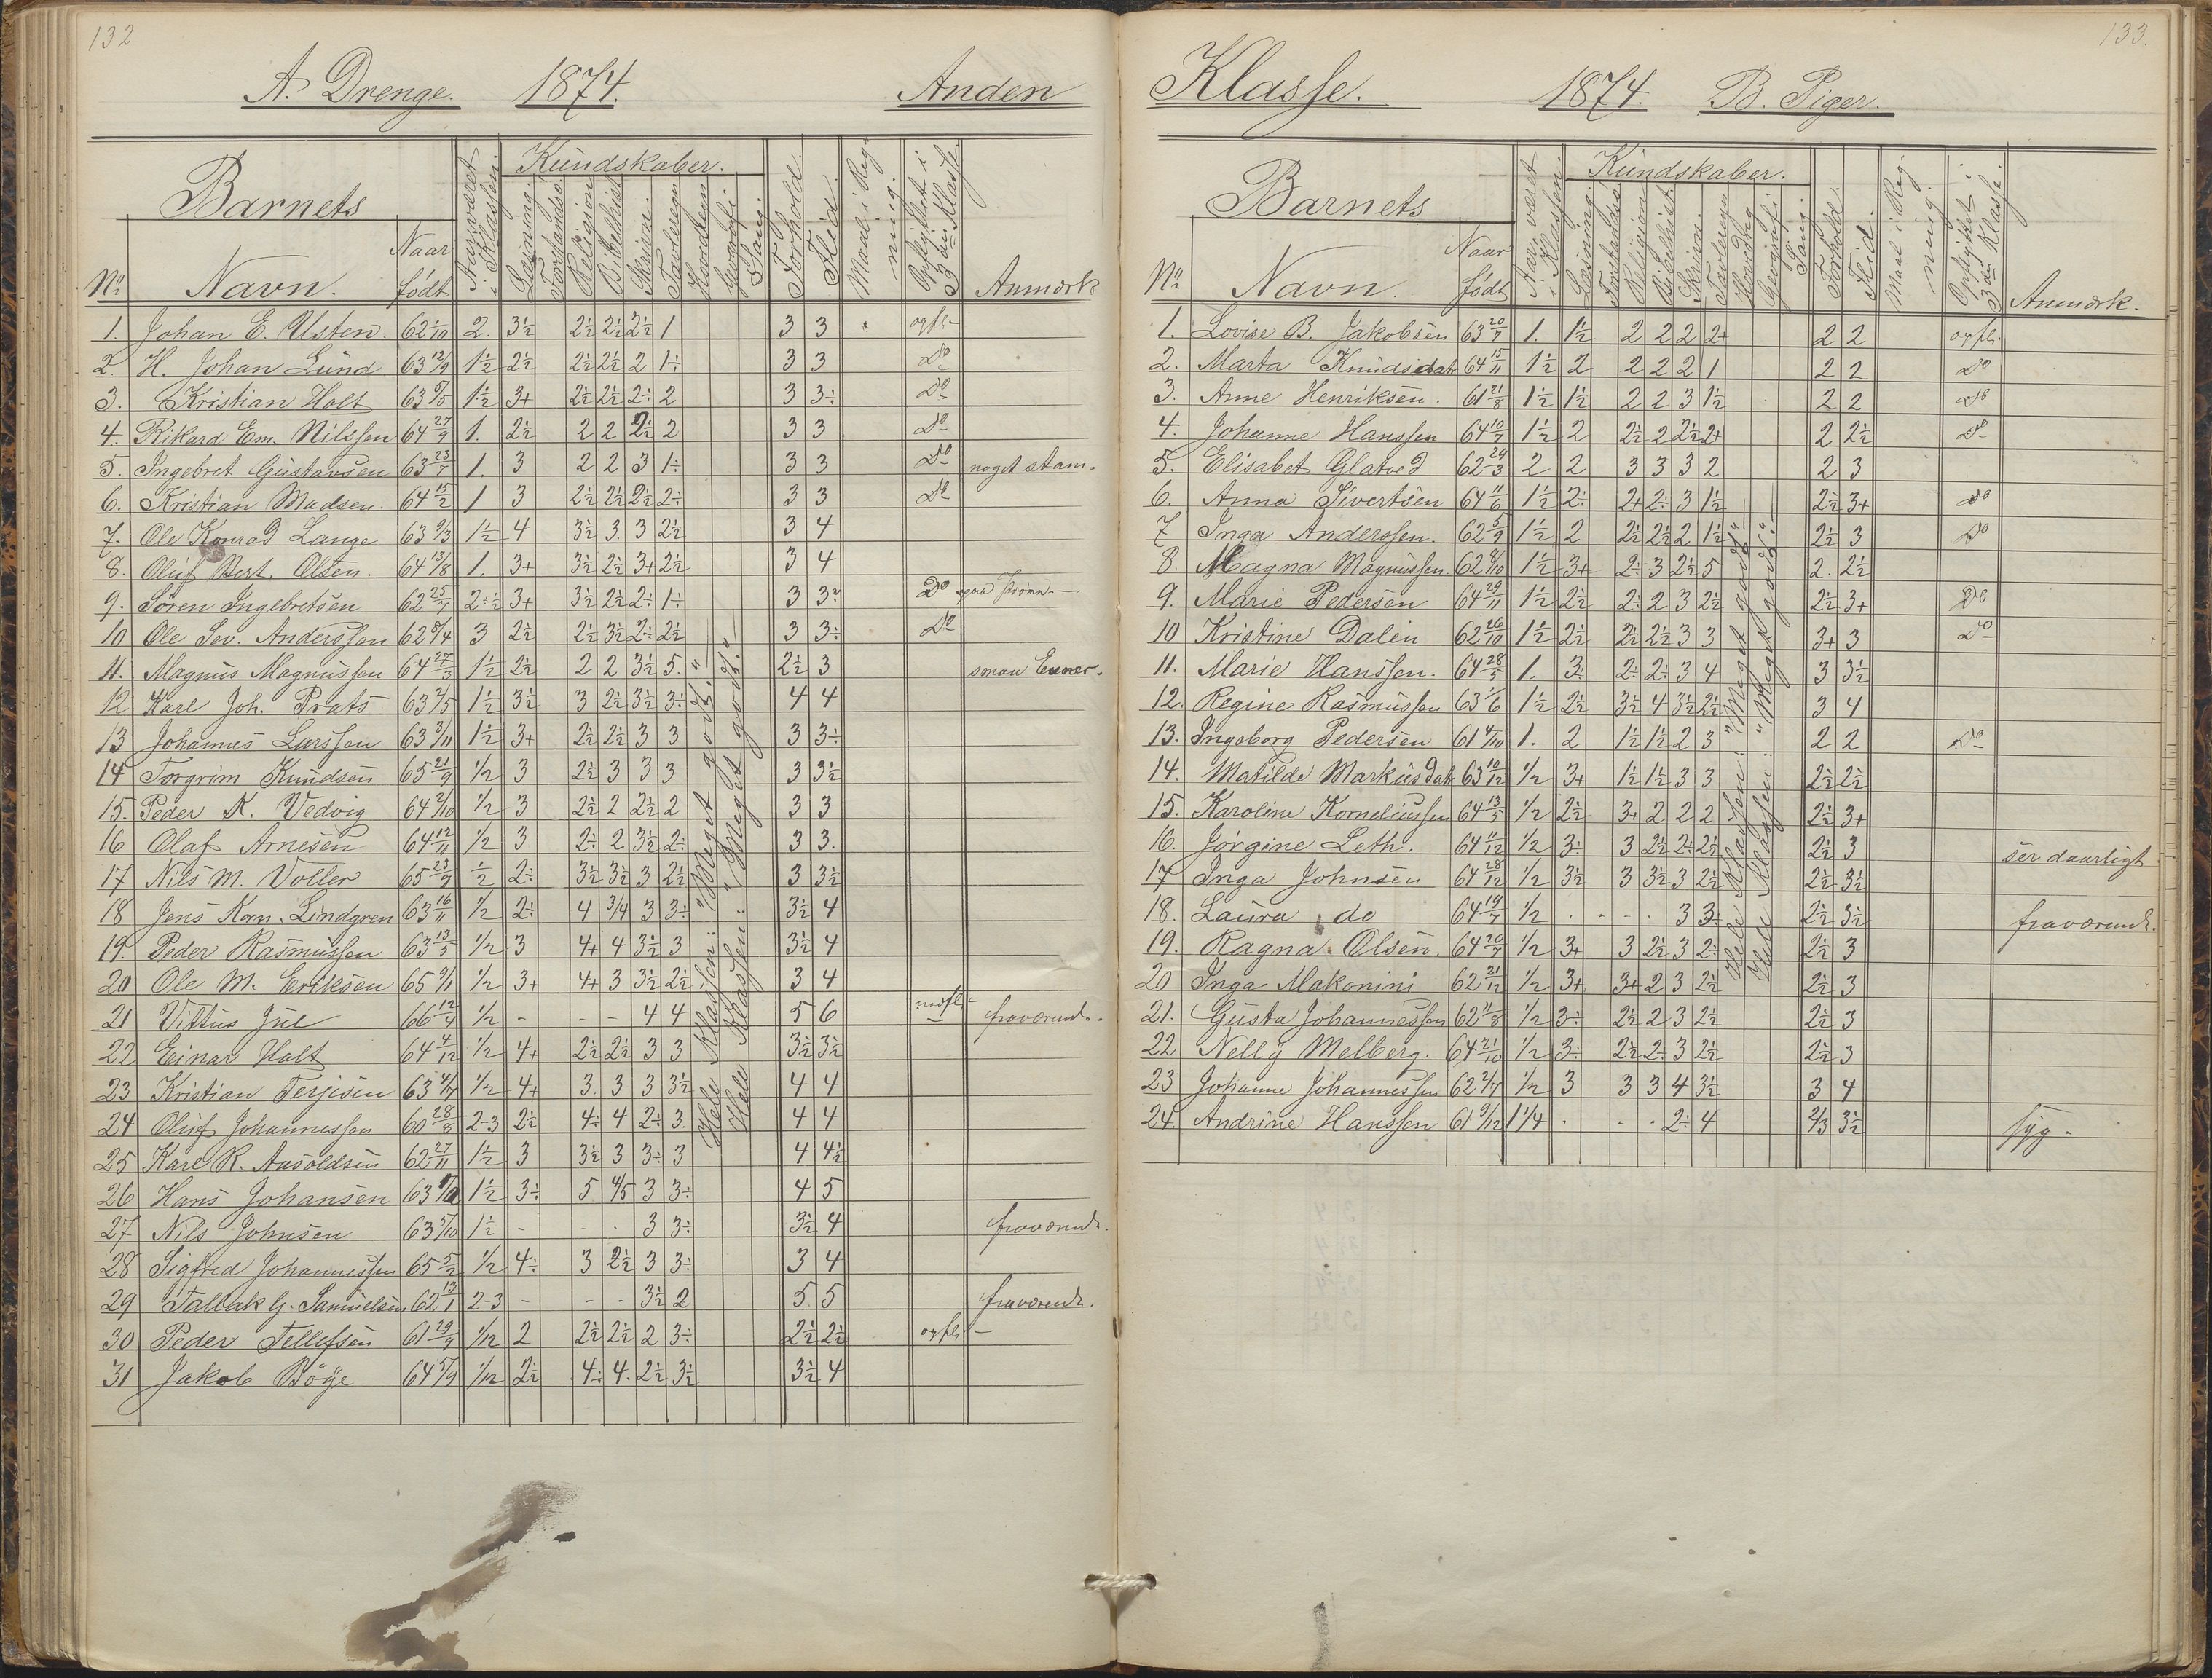 132
A. Drenge. 1874. Anden
Barnets
Kundskaber.
Aar været i Klassen.
Læsning.
Forstands.
Religion
Bibelhist.
Skrivn.
Tavleregn
Hovedregn
Geografi
Sang.
Forhold.
Flid.
Maal i Regning.
Opflyttet i 3die Klasse
Nº Navn. Naar født Anmærk
1. Johan E. Usten. 2. 3½ 2½ 2½ 2½ 1 3 3 opfl.
2. H. Johan Lund 63 12/9 1½ 2½ 2½ 2½ 2 1÷ 3 3 Do
3. Kristian Holt 1½ 3+ 2½ 2½ 2÷ 2 3 3÷ Do
4. Rikard Em. Nilssen 64 27/9 1. 2½ 2 2 2½ 2 3 3 Do
5. Ingebret Gustavsen 63 23/7 1. 3 2 2 3 1÷ 3 3 Do noget stam.
6. Kristian Madsen. 64 15/2 1 3 2½ 2½ 2½ 2÷ 3 3 Do
7. Ole Konrad Lange 63 9/3 1½ 4 3½ 3. 3 2½ 3 4
8. Oluf Bert. Olsen. 64 13/8 1. 3+ 3½ 2½ 3+ 2½ 3 4
9. Søren Ingebretsen 62 25/7 3+ 3½ 2½ 2÷ 1÷ 3 Do
10 Ole Sev. Anderssen 62 8/4 3 2½ 2½ 3½ 2÷ 2½ 3 3÷ Do
11. Magnus Magnussen 64 27/3 1½ 2½ 2 2 3½ 5. 2½ 3 smaa Evner.
12 Karl Joh. Prats 63 2/5 1½ 3½ 3 2½ 3½ 3÷ 4 4
13 Johannes Larssen 63 3/11 1½ 3+ 2½ 2½ 3 3 3 3÷
14 Torgrim Knudsen 65 21/9 ½ 3 2½ 3 3 3 3 3½
15. Peder K. Vedvig 64 2/10 ½ 3 2½ 2 2½ 2 3 3
16 Olaf Arnesen 64 12/11 ½ 3 2÷ 2 3½ 2÷ 3 3.
17 Nils M. Voller 65 23/9 ½ 2÷ 3½ 3½ 3 2½ 3 3½
18 Jens Korn. Lindgren 63 16/11 ½ 2÷ 4 3/4 3 3÷ 3½ 4
19. Peder Rasmussen 63 13/5 ½ 3 4+ 4 3½ 3 3½ 4
20 Ole M. Eriksen 65 9/1 ½ 3+ 4+ 3 3½ 2½ 3 4
21 Vittus Jul 66 12/4 ½ - - - 4 4 5 6 fraværende.
22 Einar Holt 64 4/12 ½ 4+ 2½ 2½ 3 3 3½ 3½
23 Kristian Terjesen 63 4/7 ½ 4+ 3. 3 3 3½ 4 4
24 Oluf Johannessen 60 28/8 2-3 2½ 4÷ 4 2÷ 3. 4 4
25 Karl R. Aasoldsen 62 27/11 1½ 3 3½ 3 3÷ 3 4 4½
26 Hans Johansen 1½ 3÷ 5 4/5 3 3÷ 4 5
27 Nils Johnsen 63 5/10 1½ - - - 3 3÷ 3½ 4 fraværende.
28 Sigfred Johannessen 65 5/2 ½ 4÷ 3 2½ 3 3÷ 3 4
29 Tallak G. Samuelsen 62 13/1 2-3 - - - 3½ 2 5. 5 fraværende.
30 Peder Tellefsen 61 29/9 1/12 2 2½ 2½ 2 3÷ 2½ 2½ opfl. -
31 Jakob Bøye 64 5/9 1/12 2½ 4÷ 4. 2½ 3½ 3½ 4
Hele Klassen: "Meget godt."
Hele Klassen: "Meget godt."
133.
Klasse. 1874. B. Piger.
Barnets
Kundskaber.
Aar været i Klassen.
Læsning.
Forstands
Religion.
Bibelhist.
Skrivn.
Tavleregn
Hovedrg
Geografi.
Sang.
Forhold.
Flid.
Maal i Regning.
Opflyttet i 3die Klasse.
Nº Navn. Naar født Anmærk.
1. Lovise B. Jakobsen 63 20/7 1. 1½ 2 2 2 2+ 2 2 opfl.
2. Marta Knudsdatr 64 15/11 1½ 2 2 2 2 1 2 2 Do
3. Anne Henriksen. 61 21/8 1½ 1½ 2 2 3 1½ 2 2 Do
4. Johanne Hanssen 64 10/7 1½ 2 2½ 2 2½ 2+ 2 2½ Do
5. Elisabet Glatved 62 29/3 2 2 3 3 3 2 2 3
6. Anna Sivertsen 64 11/6 1½ 2÷ 2+ 2÷ 3 1½ 2½ 3+ Do
7 Inga Anderssen. 62 5/9 1½ 2 2½ 2½ 2 1½ 2½ 3 Do
8. Magna Magnussen. 62 8/10 1½ 3+ 2÷ 3 2½ 5 2. 2½
9. Marie Pedersen 64 29/11 1½ 2½ 2÷ 2 3 2½ 2½ 3+ Do
10 Kristine Dalen 62 26/10 1½ 2½ 2½ 2½ 3 3 3+ 3 Do
11. Marie Hanssen. 64 28/5 1. 3÷ 2÷ 2÷ 3 4 3 3½
12. Regine Rasmussen 63 1/6 1½ 2½ 3½ 4 3½ 2½ 3 4
13. Ingeborg Pedersen 61 4/10 1. 2 1½ 1½ 2 3 2 2 Do
14. Matilde Markusdatr 63 10/12 ½ 3+ 1½ 1½ 3 3 2½ 2½
15. Karoline Korneliussen 64 13/5 ½ 2½ 3+ 2 2 2 2½ 3+
16. Jørgine Leth. 64 11/12 ½ 3÷ 3 2½ 2÷ 2½ 2½ 3 ser daarligt
17 Inga Johnsen 64 28/12 ½ 3½ 3 3½ 3 2½ 2½ 3½
18. Laura do 64 19/7 ½ . - - . 3 3÷ 2½ 3½ fraværende.
19. Ragna Olsen. 64 20/7 ½ 3+ 3 2½ 3 2÷ 2½ 3
20 Inga Makonini 62 21/12 ½ 3+ 3+ 2 3 2½ 2½ 3
21. Gusta Johannessen 62 11/8 ½ 3÷ 2½ 2 3 2½ 2½ 3
22 Nelly Melberg. 64 21/10 ½ 3÷ 2½ 2÷ 3 2½ 2½ 3
23 Johanne Johannessen 62 2/7 ½ 3 3 3 4 3½ 3 4
24. Andrine Hanssen 61 9/12 1¼ . . . 2÷ 4 2/3 3½ syg.
Hele Klassen: "Meget godt."
Hele Klassen: "Meget godt."